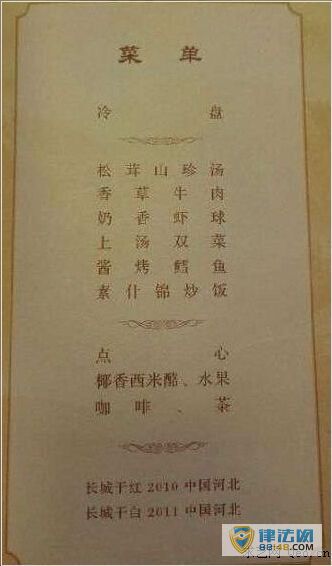 菜单
冷盘
松茸山珍汤
香草牛肉
奶香虾球
上汤双菜
酱烤鳕鱼
素什锦炒饭
点心
椰香西米酪、水果
咖啡、茶
长城干红2010中国河北
长城干白2011中国河北
律法网
88148.COM